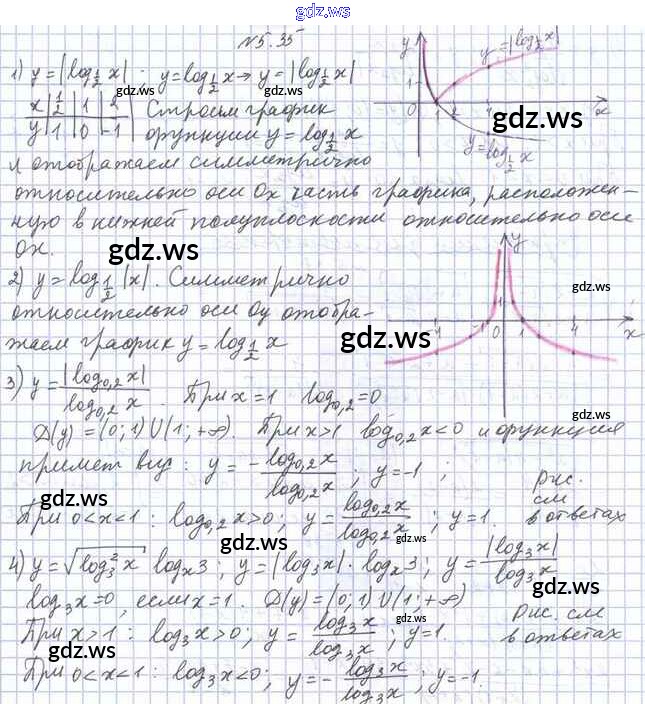 gdz.ws
№5.35
1) y=|log_{1/2} x| ; y=log_{1/2} x → y=|log_{1/2} x|
x | 1/2 | 1 | 2 | Строим график
y | 1 | 0 | -1 | функции y=log_{1/2} x
и отображаем симметрично
относительно оси Ox часть графика, расположен-
ную в нижней полуплоскости относительно оси
Ox.
y
y=|log_{1/2} x|
1
0 1 2 4 x
y=log_{1/2} x
gdz.ws
gdz.ws
gdz.ws
2) y=log_{1/2} |x|. Симметрично
относительно оси Oy отобра-
жаем график y=log_{1/2} x
y
-4 -1 0 1 4 x
gdz.ws
gdz.ws
gdz.ws
3) y=|log_{0,2} x|/log_{0,2} x. При x=1 log_{0,2}=0
D(y)=(0;1)U(1;+∞). При x>1 log_{0,2} x<0 и функция
примет вид: y=-log_{0,2} x/log_{0,2} x ; y=-1 ;
При 0<x<1: log_{0,2} x>0; y=log_{0,2} x/log_{0,2} x ; y=1.
Рис.
см
в ответах
gdz.ws
gdz.ws
gdz.ws
gdz.ws
4) y=√(log_3^2 x) log_x 3 ; y=|log_3 x|·log_x 3; y=|log_3 x|/log_3 x
log_3 x=0, если x=1. D(y)=(0;1)U(1;+∞)
При x>1: log_3 x>0; y=log_3 x/log_3 x ; y=1.
При 0<x<1: log_3 x<0; y=-log_3 x/log_3 x ; y=-1.
Рис. см
в ответах
gdz.ws
gdz.ws
gdz.ws
gdz.ws
gdz.ws